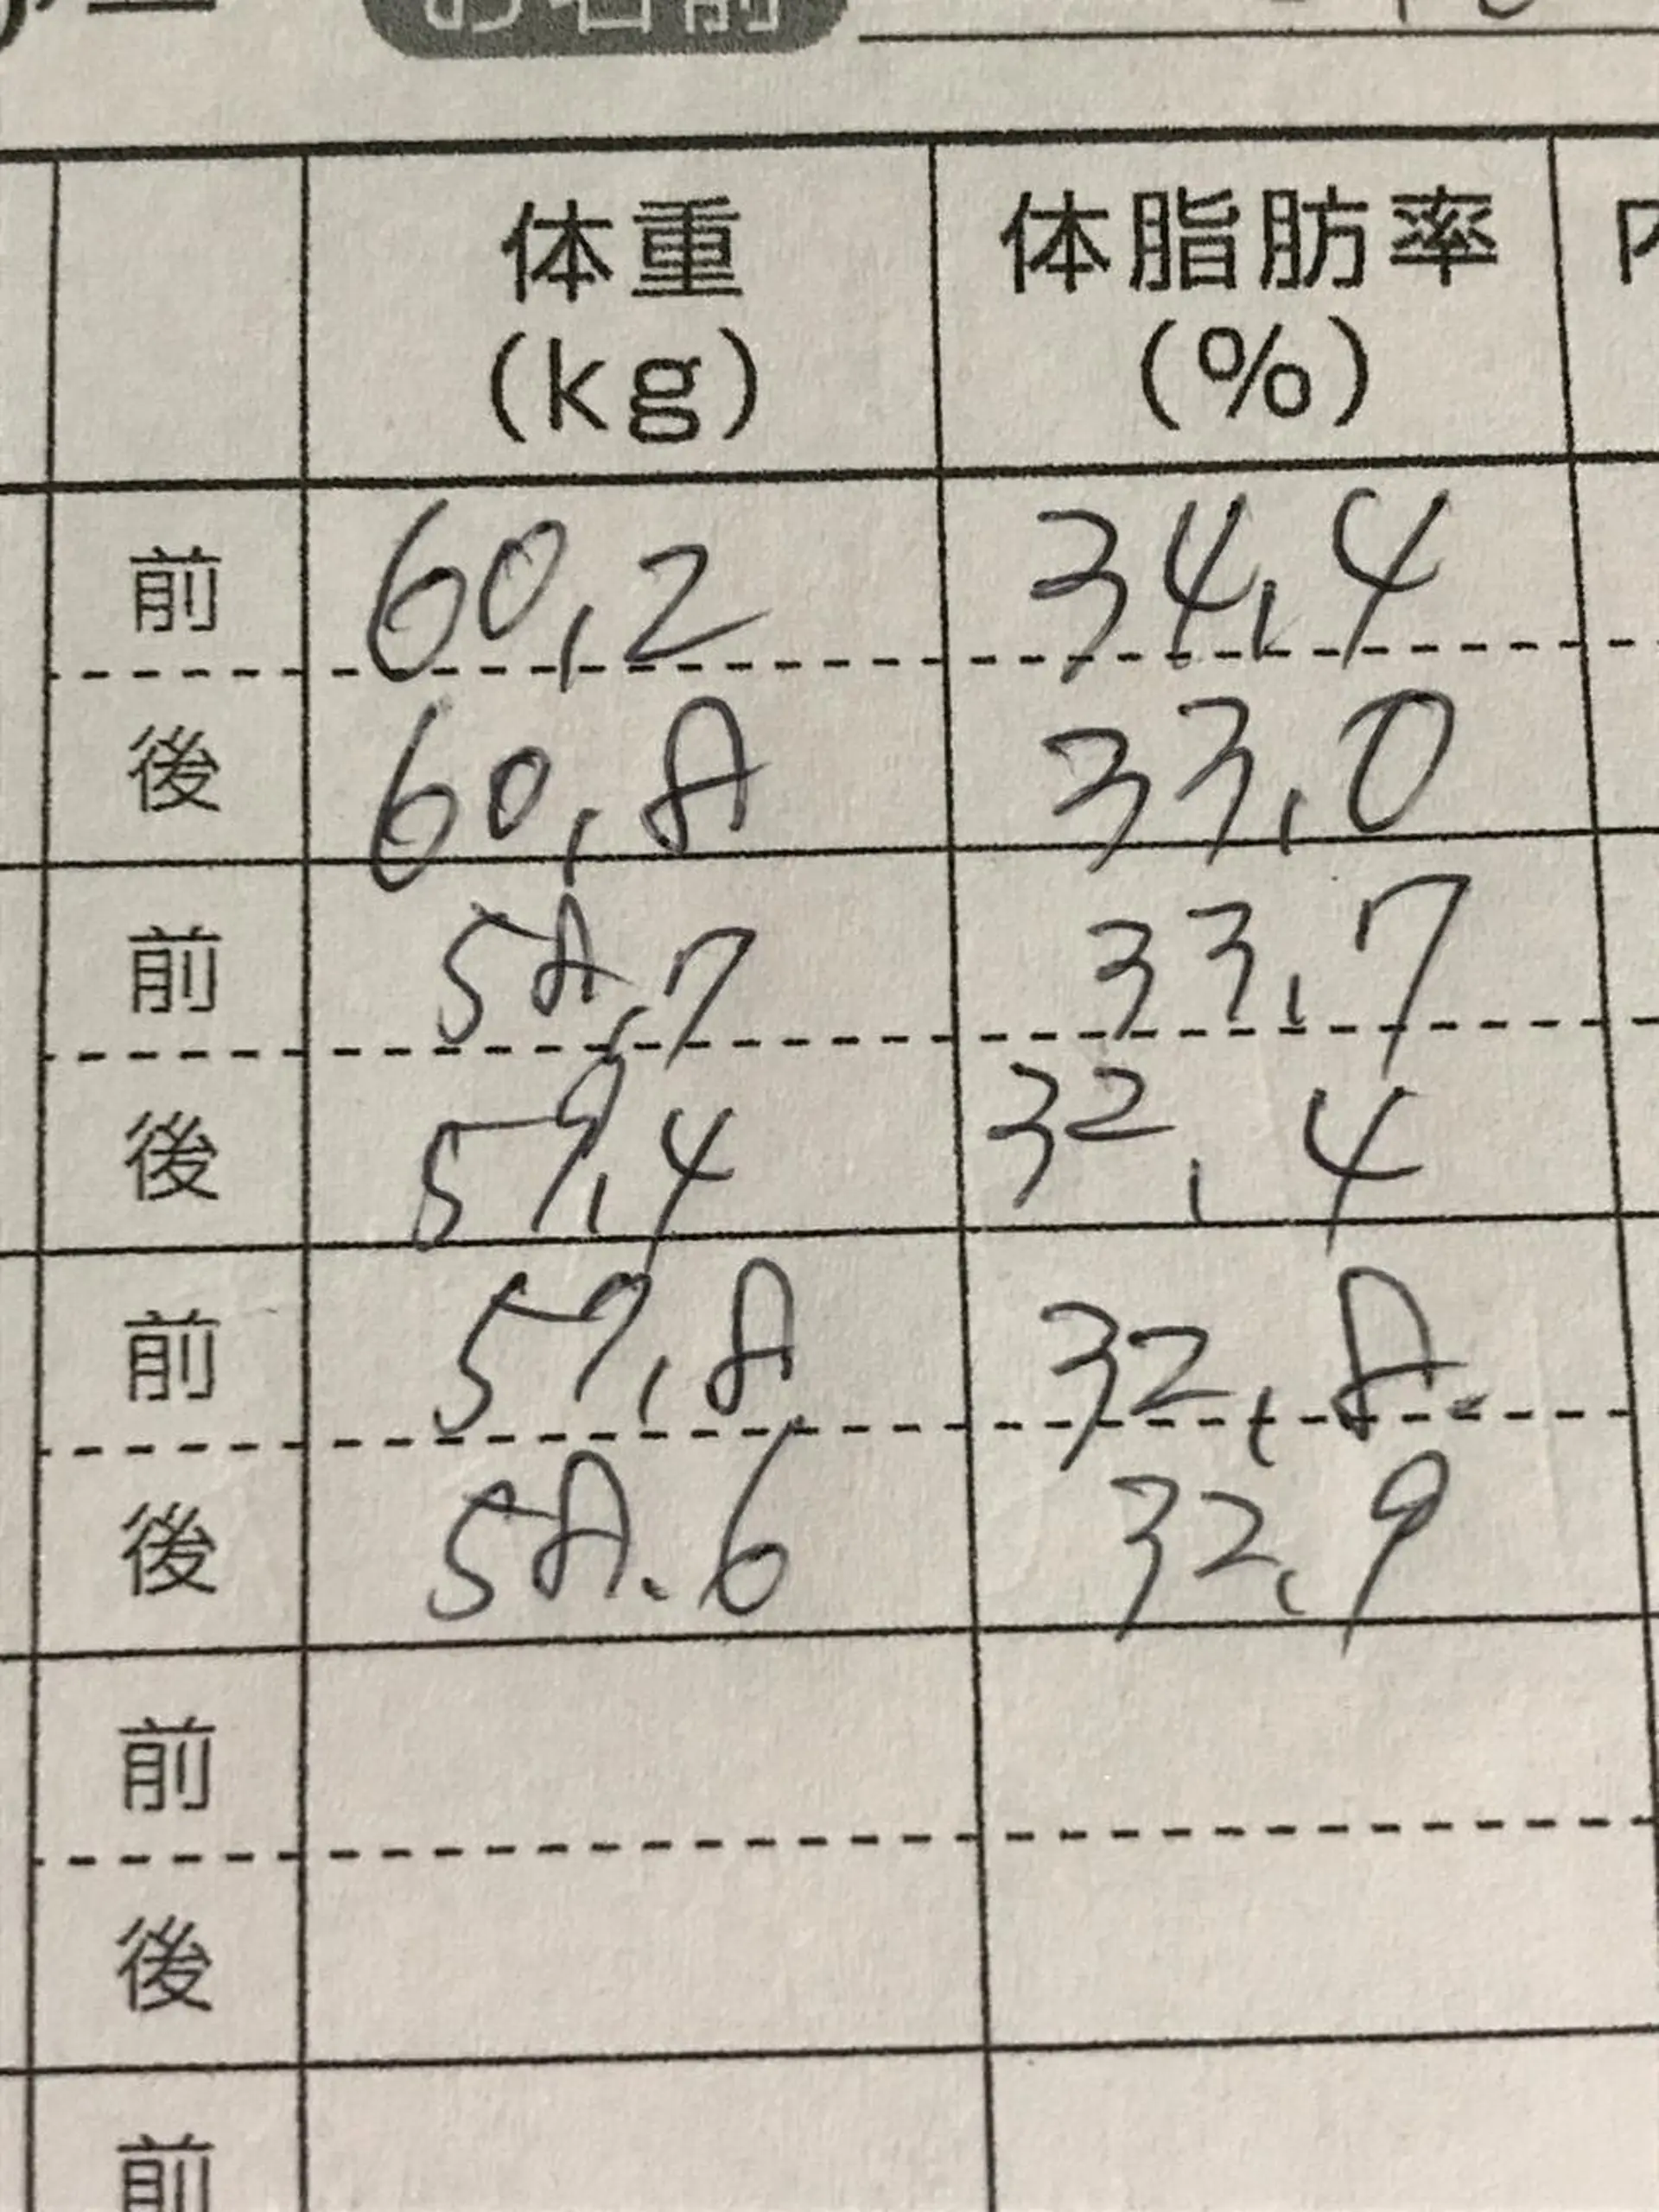 お名前
体重 体脂肪率
(kg) (%)
前 60,2 34,4
後 60,8 33,0
前 58,7 33,7
後 59,4 32,4
前 57,8 32,8
後 58.6 32,9
前
後
前